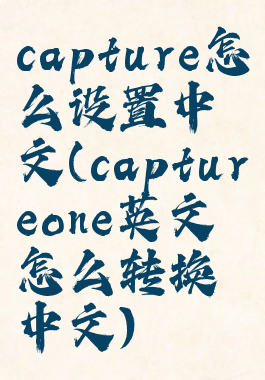 capture怎
么设置中
文(captur
eone英文
怎么转换
中文)